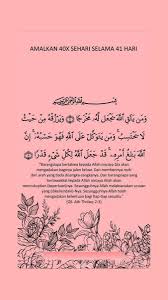 AMALKAN 40X SEHARI SELAMA 41 HARI
وَمَن يَتَّقِ اللَّهَ يَجْعَل لَّهُ مَخْرَجًا ۝ وَيَرْزُقْهُ مِنْ حَيْثُ
لَا يَحْتَسِبُ وَمَن يَتَوَكَّلْ عَلَى اللَّهِ فَهُوَ حَسْبُهُ إِنَّ
اللَّهَ بَٰلِغُ أَمْرِهِ قَدْ جَعَلَ اللَّهُ لِكُلِّ شَيْءٍ قَدْرًا ۝
"Barangsiapa bertakwa kepada Allah niscaya Dia akan
mengadakan baginya jalan keluar. Dan memberinya rezki
dari arah yang tiada disangka-sangkanya. Dan barangsiapa
yang bertawakkal kepada Allah niscaya Allah akan
mencukupkan (keperluan)nya. Sesungguhnya Allah melaksanakan urusan
yang (dikehendaki)Nya. Sesungguhnya Allah telah
mengadakan ketentuan bagi tiap-tiap sesuatu."
(QS. Ath-Thalaq: 2-3)